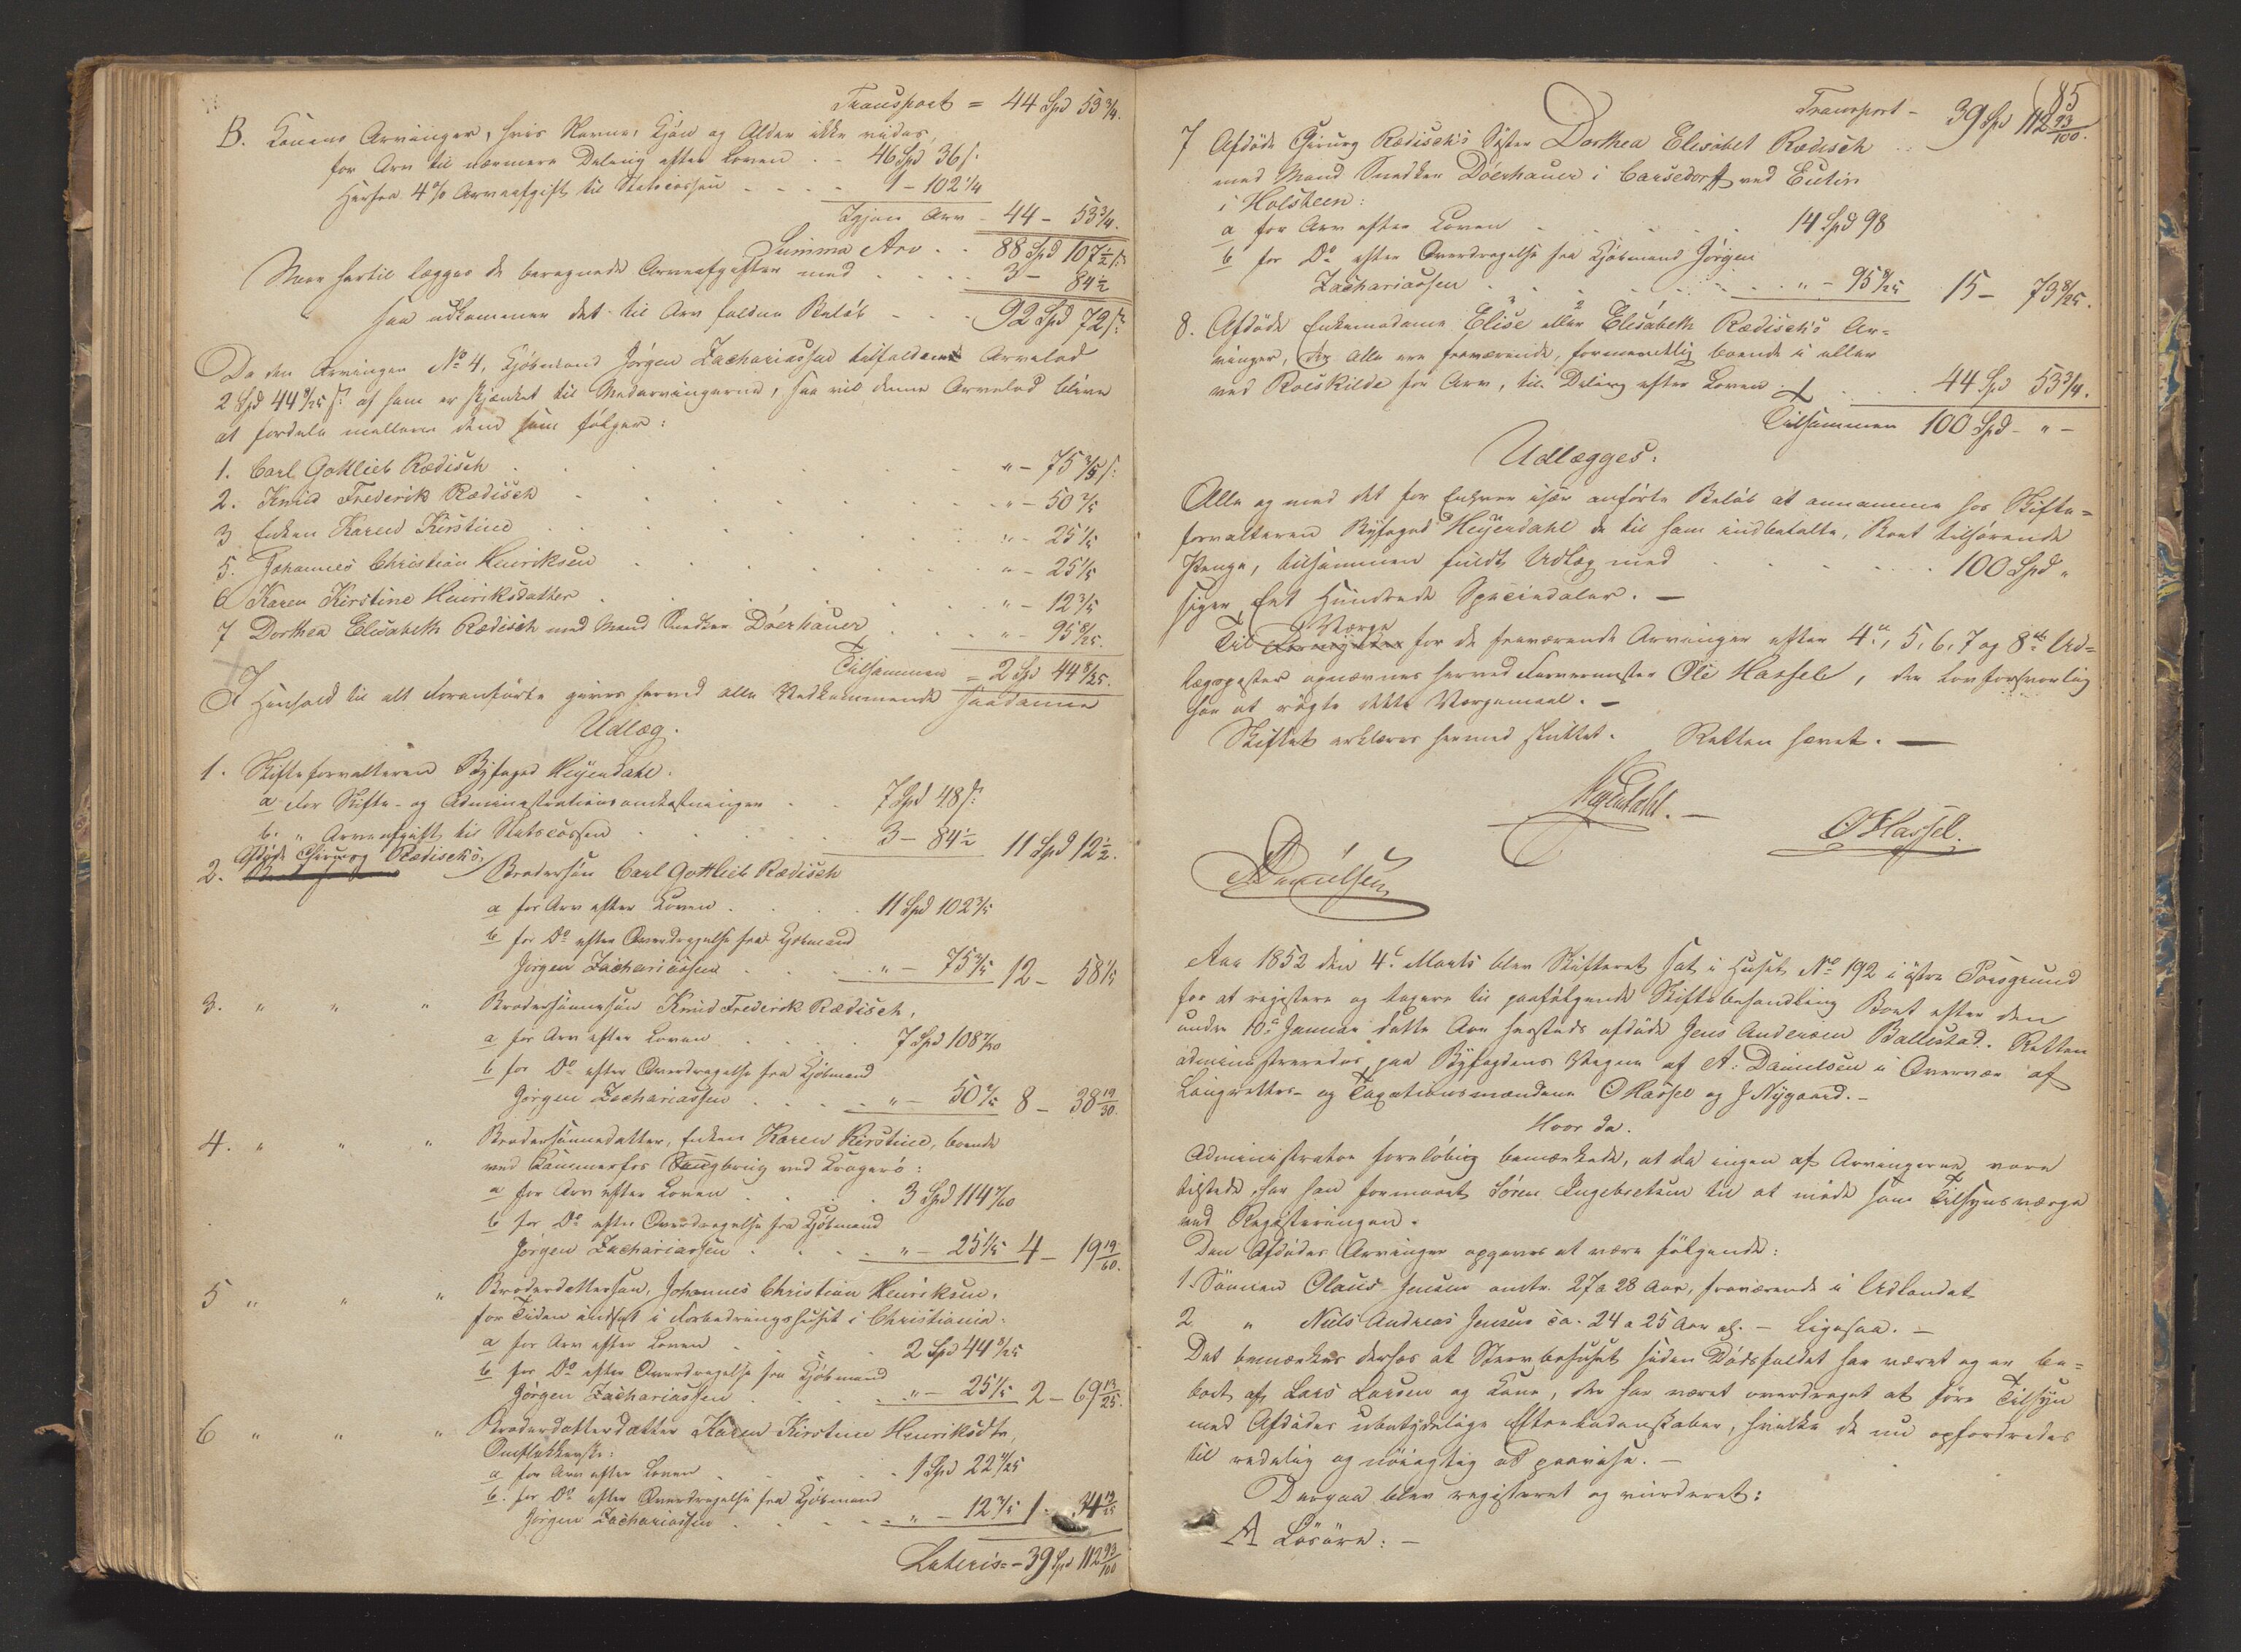 Transport = 44 Spd 53 3/4.
B. Konens Arvinger, hvis Navne, Kjøn og Alder ikke vides,
for Arv til nærmere Deling efter Loven - - 46 Spd 36 s:
Herfra 4% Arveafgift til Statscassen - - - - 1 - 102 1/4
Igjen Arv - 44 - 53 3/4.
Summa Arv - - 88 Spd 107 1/2 s:
Naar hertil lægges de beregnede Arveafgifter med - - - - 3 - 84 1/2
saa udkommer det til Arv faldne Beløb - - - 92 Spd 72 s:
Da den Arvingen No 4, Kjøbmand Jørgen Zachariassen tilfaldende Arvelod
2 Spd 44 8/25 s: af ham er skjænket til Medarvingerne, saa vil denne Arvelod blive
at fordele mellem dem som følger:
1. Carl Gottlieb Rædisch " - 75 3/5 s:
2. Knud Frederik Rædisch " - 50 2/5
3 Enken Karen Kirstine " - 25 1/5
5. Johannes Christian Henriksen " - 25 1/5
6 Karen Kirstine Henriksdatter " - 12 3/5
7 Dorthea Elisabeth Rædisch med Mand Snedker Döerhauer " - 95 8/25.
Tilsammen = 2 Spd 44 8/25.
I Henhold til alt Foranførte gives herved alle Vedkommende saadanne
Udlæg.
1. Skifteforvalteren Byfoged Heyerdahl.
a. for Skifte- og Administrationsomkostninger - - 7 Spd 48 s:
b. " Arveafgift til Statscassen 3 - 84 1/2 11 Spd 12 1/2.
Afdøde Chirurg Rædisch's
2. Brodersøn Carl Gottlieb Rædisch
a for Arv efter Loven 11 Spd 102 3/5
b for Do efter Overdragelse fra Kjøbmand
Jørgen Zachariassen " - 75 3/5 12 - 58 1/5
3. " " " Brodersønnesøn Knud Frederik Rædisch,
a for Arv efter Loven 7 Spd 108 7/30
b for Do efter Overdragelse fra Kjøbmand
Jørgen Zachariassen " - 50 2/5 8 - 38 19/30.
4. " " " Brodersønnedatter, Enken Karen Kirstine, boende
ved Kammerfos Sangbrug ved Kragerø:
a for Arv efter Loven 3 Spd 114 7/60
b for Do efter Overdragelse fra Kjøbmand
Jørgen Zachariassen " - 25 1/5 4 - 19 19/60.
5 " " " Broderdattersøn, Johannes Christian Henriksen,
for Tiden indsat i Forbedringshuset i Christiania:
a for Arv efter Loven 2 Spd 44 8/25
b for Do efter Overdragelse fra Kjøbmand
Jørgen Zachariassen " - 25 1/5 2 - 69 13/25.
6 " " " Broderdatterdatter Karen Kirstine Henriksdtr,
Omflakkerske:
a for Arv efter Loven 1 Spd 22 4/25
b. for Do efter Overdragelse fra Kjøbmand
Jørgen Zachariassen " - 12 3/5 1 - 34 19/25
Lateris = - 39 Spd 112 93/100
85
Transport - 39 Spd 112 93/100.
7 Afdøde Chirurg Rædisch's Søster Dorthea Elisabet Rædisch
med Mand Snedker Döerhauer i Carsedorff ved Eutin
i Holsteen:
a for Arv efter Loven 14 Spd 98
b for Do efter Overdragelse fra Kjøbmand Jørgen
Zachariassen " - 95 8/25 15 - 73 8/25.
8. Afdøde Enkemadame Elise eller Elisabeth Rædisch's Ar-
vinger, der alle ere fraværende, formeentlig boende i eller
ved Roeskilde for Arv, til Deling efter Loven 44 Spd 53 3/4.
Tilsammen 100 Spd - " -
Udlægges:
Alle og med det for Enhver især anførte Beløb at annamme hos Skifte-
forvalteren Byfoged Heyerdahl de til ham indbetalte, Boet tilhørende
Penge, tilsammen fuldt Udlæg med 100 Spd "
siger Eet Hundrede Speciedaler. -
Værge
Til Formynder for de fraværende Arvinger efter 4de, 5, 6, 7 og 8de Ud-
lægsposter opnævnes herved Farvermester Ole Hassel, der Lovforsvarlig
har at røgte dette Værgemaal. -
Skiftet erklæres hermed sluttet. Retten hævet. -
Heyerdahl. -
O Hassel.
A Danielsen
Aar 1852 den 4de Marts blev Skifteret sat i Huset No 192 i østre Porsgrund
for at registere og taxere til paafølgende Skiftebehandling Boet efter den
under 10de Januar dette Aar hersteds afdøde Jens Andersen Ballestad. Retten
administreredes paa Byfogdens Vegne af A: Danielsen i Overvær af
Laugrettes- og Taxationsmændene O Hassel og J Nygaard. -
Hvor da.
Administrator foreløbig bemærkede, at da ingen af Arvingerne vare
tilstede, har han formaaet Søren Engebretsen til at møde som Tilsynsværge
ved Registeringen.
Den Afdødes Arvinger opgaves at være følgende:
1. Sønnen Olaus Jensen omtr. 27 a 28 Aar, fraværende i Udlandet
2 " Niels Andreas Jensen ca. 24 a 25 Aar gl. - Ligesaa. -
Det bemærkes derhos at Stervbohuset siden Dødsfaldet har været og er be-
boet af Lars Larsen og Kone, der har været overdraget at føre Tilsyn
med Afdødes ubetydelige Efterladenskaber, hvilke de nu opfordredes
til redelig og nøiagtig at paavise. -
Derpaa blev registeret og vurderet:
A Løsøre: -